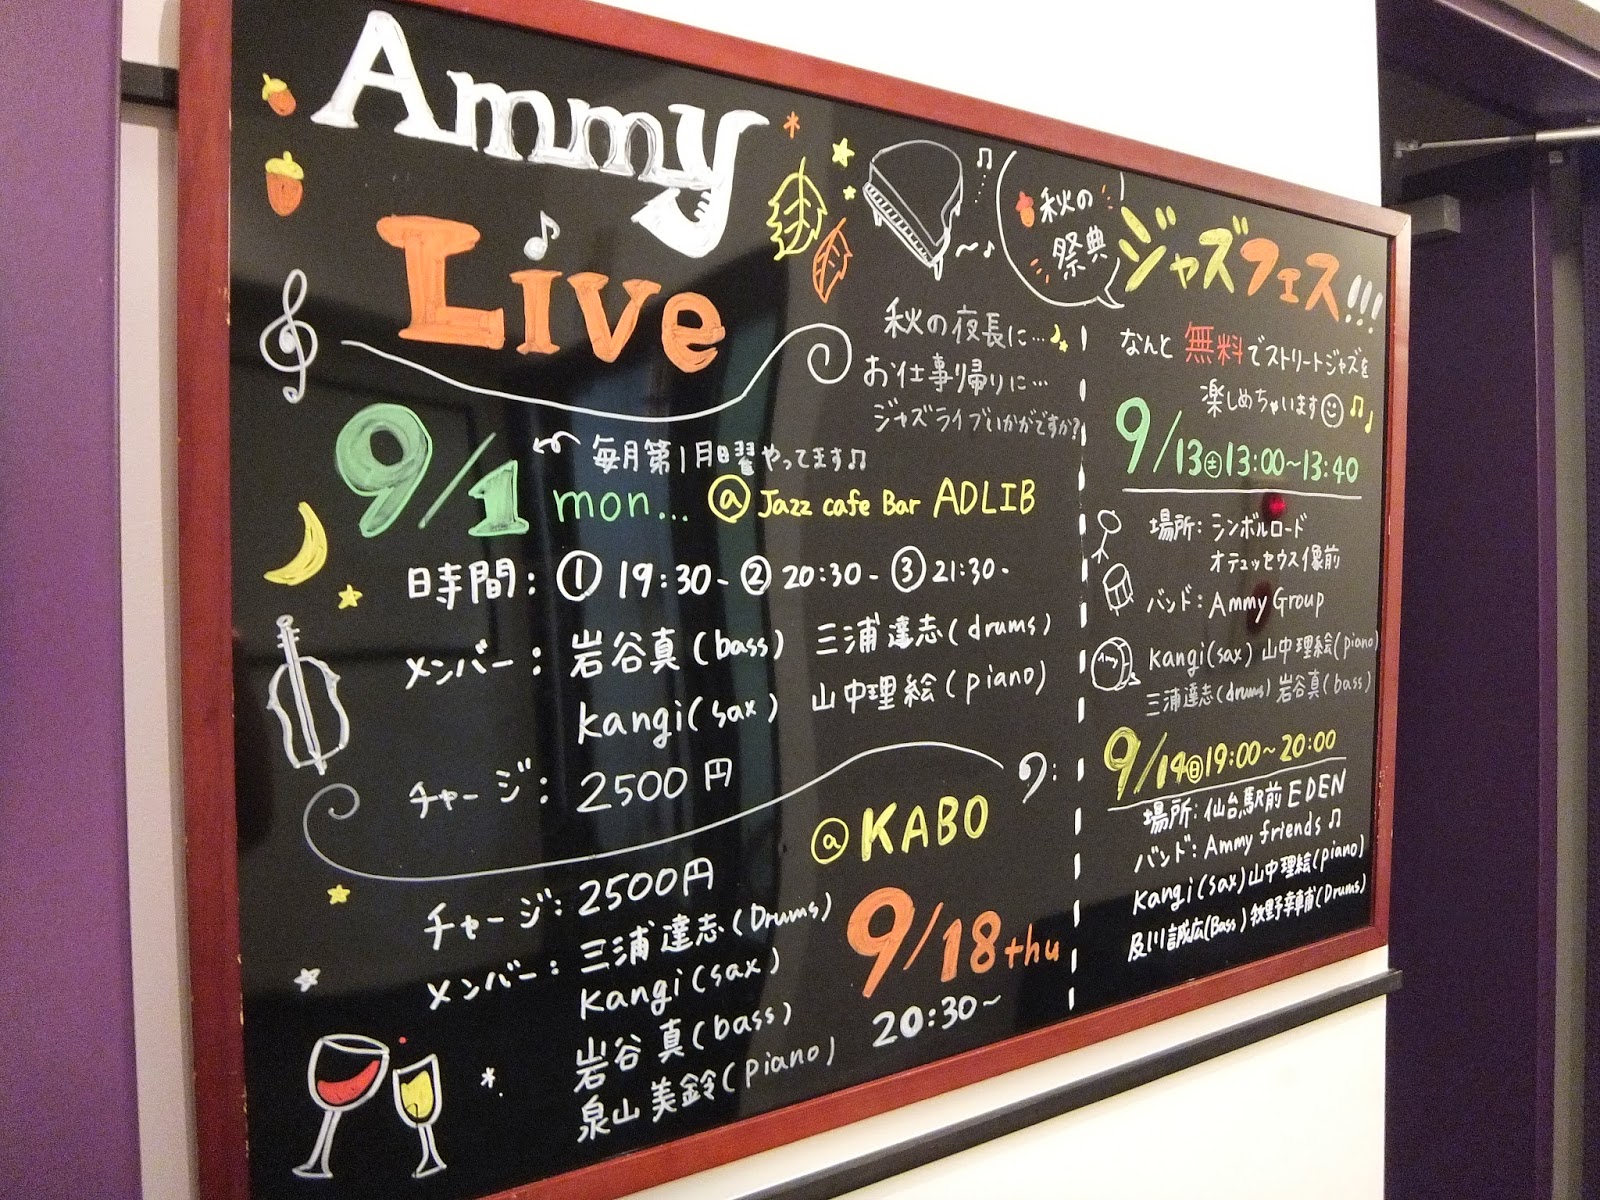 Ammy
Live
秋の夜長に…
お仕事帰りに…
ジャズライブいかがですか?
9/1 mon... @ Jazz cafe Bar ADLIB
毎月第1月曜やってます♫
時間: ① 19:30- ② 20:30- ③ 21:30-
メンバー: 岩谷真(bass) 三浦達志(drums)
kangi(sax) 山中理絵(piano)
チャージ: 2500円
@ KABO
9/18 thu
20:30~
チャージ: 2500円
メンバー: 三浦達志(Drums)
kangi(sax)
岩谷真(bass)
泉山美鈴(piano)
秋の
祭典
ジャズフェス!!!
なんと 無料でストリートジャズを
楽しめちゃいます
9/13㊏13:00~13:40
場所: シンボルロード
オデュッセウス像前
バンド: Ammy Group
kangi(sax) 山中理絵(piano)
三浦達志(drums) 岩谷真(bass)
9/14㊐19:00~20:00
場所: 仙台駅前EDEN
バンド: Ammy friends ♫
kangi(sax)山中理絵(piano)
及川誠広(Bass)牧野幸輔(Drums)